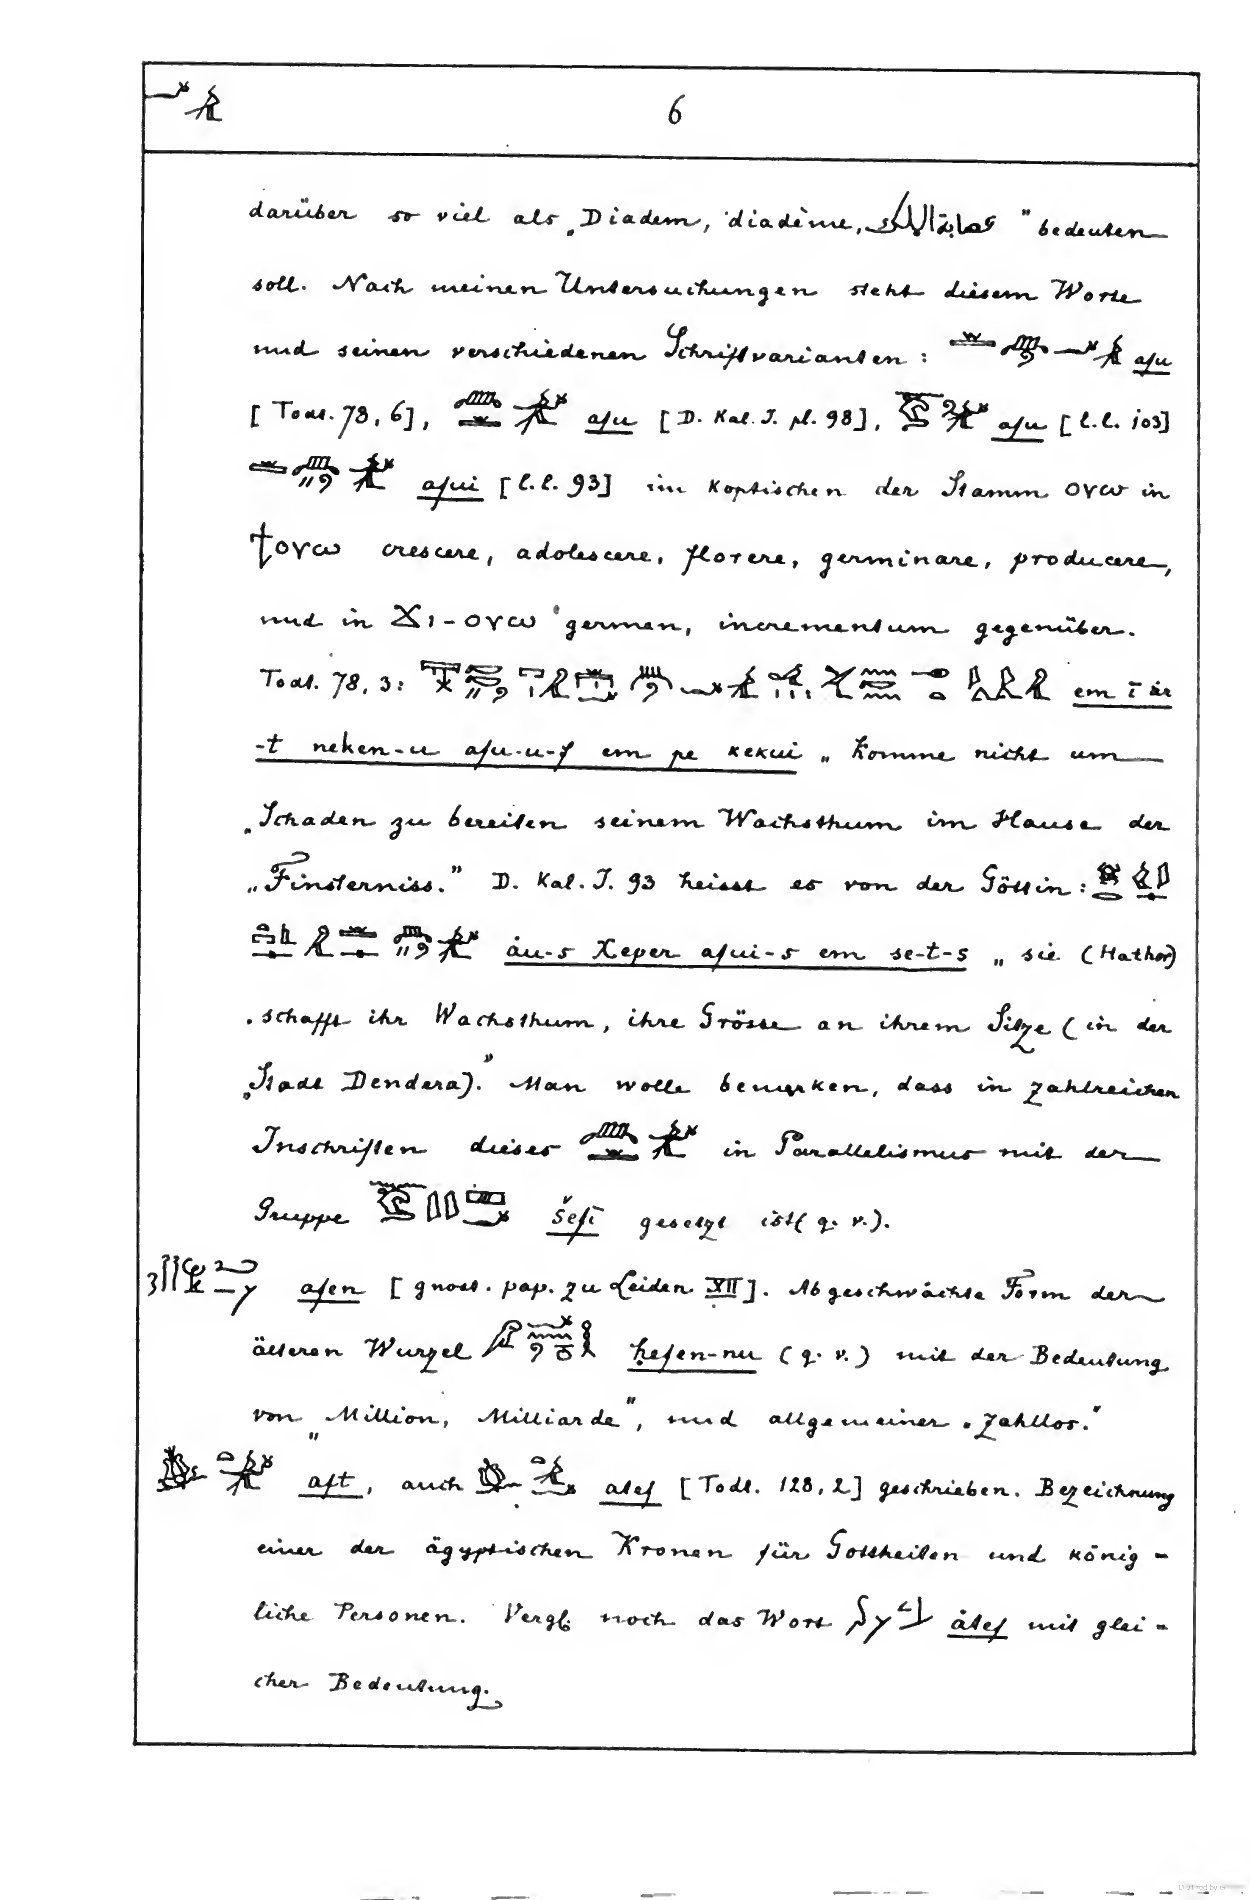 6
darüber so viel als „Diadem, diadème, عصابة الملك" bedeuten
soll. Nach meinen Untersuchungen steht diesem Worte
und seinen verschiedenen Schriftvarianten: afu
[Todt. 78, 6], afu [D. Kal. I. pl. 98], afu [l.l. 103]
afui [l.l. 93] im koptischen der Stamm ⲟⲩⲱ in
ϯⲟⲩⲱ crescere, adolescere, florere, germinare, producere,
und in ϫⲓ-ⲟⲩⲱ germen, incrementum gegenüber.
Todt. 78, 3: em ī är
-t neken-u afu-u-f em pe kekui „Komme nicht um
„Schaden zu bereiten seinem Wachsthum im Hause der
„Finsterniss." D. Kal. I. 93 heisst es von der Göttin:
áu-s χeper afui-s em se-t-s „sie (Hathor)
„schafft ihr Wachsthum, ihre Grösse an ihrem Sitze (in der
„Stadt Dendera)." Man wolle bemerken, dass in zahlreichen
Inschriften dieses in Parallelismus mit der
Gruppe šefī gesetzt ist (q. v.).
afen [gnost. pap. zu Leiden XII]. Abgeschwächte Form der
älteren Wurzel ḥefen-nu (q. v.) mit der Bedeutung
von „Million, Milliarde", und allgemeiner „zahllos."
aft, auch atef [Todt. 128, 2] geschrieben. Bezeichnung
einer der ägyptischen Kronen für Gottheiten und könig-
liche Personen. Vergl. noch das Wort átef mit glei-
cher Bedeutung.